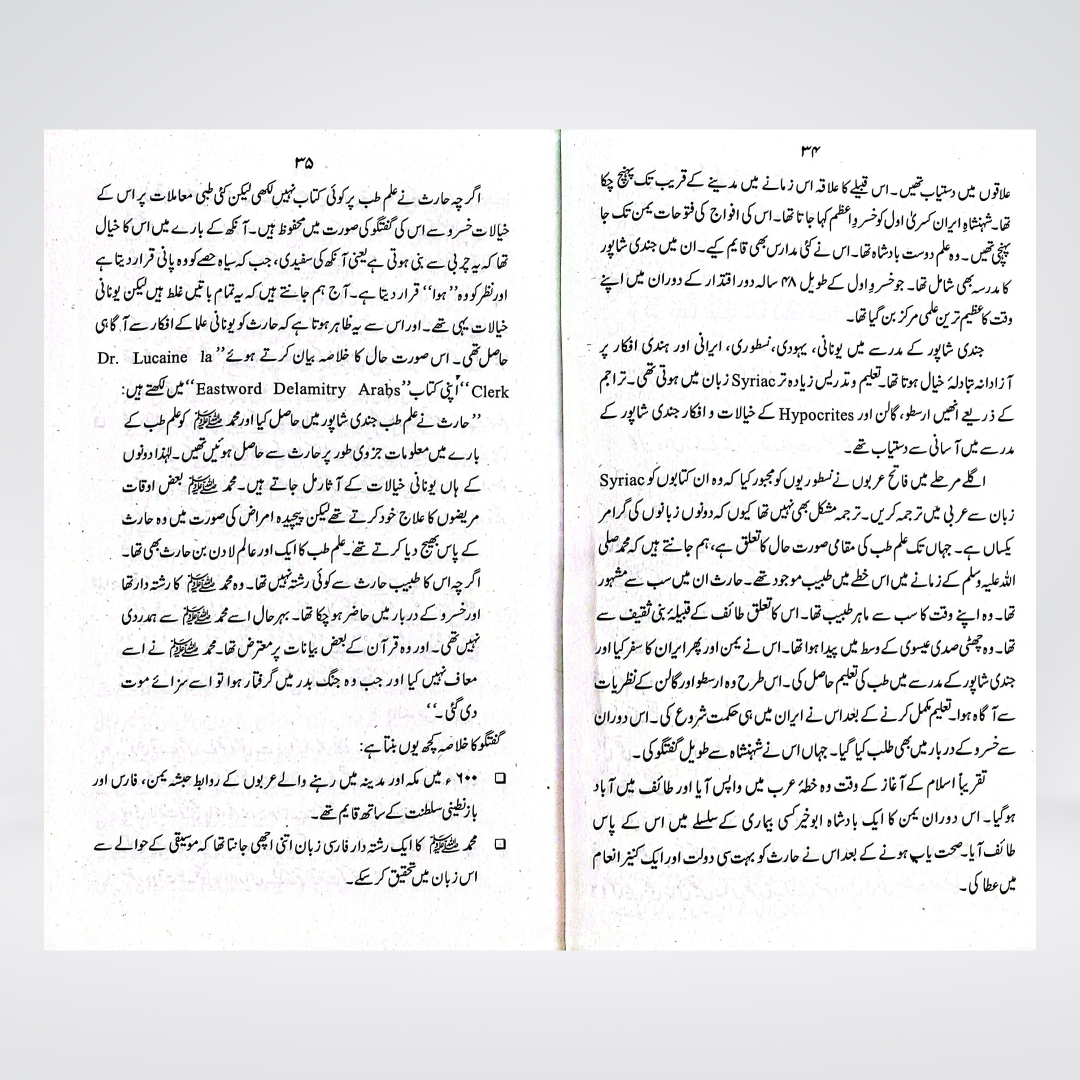 ۳۴
علاقوں میں دستیاب تھیں۔ اس قبیلے کا علاقہ اس زمانے میں مدینے کے قریب تک پہنچ چکا
تھا۔ شہنشاہِ ایران کسریٰ اول کو خسروِ اعظم کہا جاتا تھا۔ اس کی افواج کی فتوحات یمن تک جا
پہنچی تھیں۔ وہ علم دوست بادشاہ تھا۔ اس نے کئی مدارس بھی قایم کیے۔ ان میں جندی شاپور
کا مدرسہ بھی شامل تھا۔ جو خسروِ اول کے طویل ۴۸ سالہ دور اقتدار کے دوران میں اپنے
وقت کا عظیم ترین علمی مرکز بن گیا تھا۔
جندی شاپور کے مدرسے میں یونانی، یہودی، نسطوری، ایرانی اور ہندی افکار پر
آزادانہ تبادلۂ خیال ہوتا تھا۔ تعلیم و تدریس زیادہ تر Syriac زبان میں ہوتی تھی۔ تراجم
کے ذریعے انھیں ارسطو، گالن اور Hypocrites کے خیالات و افکار جندی شاپور کے
مدرسے میں آسانی سے دستیاب تھے۔
اگلے مرحلے میں فاتح عربوں نے نسطوریوں کو مجبور کیا کہ وہ ان کتابوں کو Syriac
زبان سے عربی میں ترجمہ کریں۔ ترجمہ مشکل بھی نہیں تھا کیوں کہ دونوں زبانوں کی گرامر
یکساں ہے۔ جہاں تک علم طب کی مقامی صورت حال کا تعلق ہے، ہم جانتے ہیں کہ محمد صلی
اللہ علیہ وسلم کے زمانے میں اس خطے میں طبیب موجود تھے۔ حارث ان میں سب سے مشہور
تھا۔ وہ اپنے وقت کا سب سے ماہر طبیب تھا۔ اس کا تعلق طائف کے قبیلۂ بنی ثقیف سے
تھا۔ وہ چھٹی صدی عیسوی کے وسط میں پیدا ہوا تھا۔ اس نے یمن اور پھر ایران کا سفر کیا اور
جندی شاپور کے مدرسے میں طب کی تعلیم حاصل کی۔ اس طرح وہ ارسطو اور گالن کے نظریات
سے آگاہ ہوا۔ تعلیم مکمل کرنے کے بعد اس نے ایران میں ہی حکمت شروع کی۔ اس دوران
سے خسرو کے دربار میں بھی طلب کیا گیا۔ جہاں اس نے شہنشاہ سے طویل گفتگو کی۔
تقریباً اسلام کے آغاز کے وقت وہ خطۂ عرب میں واپس آیا اور طائف میں آباد
ہو گیا۔ اس دوران یمن کا ایک بادشاہ ابوخیر کسی بیماری کے سلسلے میں اس کے پاس
طائف آیا۔ صحت یاب ہونے کے بعد اس نے حارث کو بہت سی دولت اور ایک کنیز انعام
میں عطا کی۔
۳۵
اگرچہ حارث نے علم طب پر کوئی کتاب نہیں لکھی لیکن کئی طبی معاملات پر اس کے
خیالات خسرو سے اس کی گفتگو کی صورت میں محفوظ ہیں۔ آنکھ کے بارے میں اس کا خیال
تھا کہ یہ چربی سے بنی ہوتی ہے یعنی آنکھ کی سفیدی، جب کہ سیاہ حصے کو وہ پانی قرار دیتا ہے
اور نظر کو وہ ’’ہوا‘‘ قرار دیتا ہے۔ آج ہم جانتے ہیں کہ یہ تمام باتیں غلط ہیں لیکن یونانی
خیالات یہی تھے۔ اور اس سے یہ ظاہر ہوتا ہے کہ حارث کو یونانی علما کے افکار سے آگاہی
حاصل تھی۔ اس صورت حال کا خلاصہ بیان کرتے ہوئے ’’Dr. Lucaine la
Clerk‘‘ اپنی کتاب ’’Eastword Delamitry Arabs‘‘ میں لکھتے ہیں:
’’حارث نے علم طب جندی شاپور میں حاصل کیا اور محمد ﷺ کو علم طب کے
بارے میں معلومات جزوی طور پر حارث سے حاصل ہوئیں تھیں۔ لہٰذا دونوں
کے ہاں یونانی خیالات کے آثار مل جاتے ہیں۔ محمد ﷺ بعض اوقات
مریضوں کا علاج خود کرتے تھے لیکن پیچیدہ امراض کی صورت میں وہ حارث
کے پاس بھیج دیا کرتے تھے۔ علم طب کا ایک اور عالم لادن بن حارث بھی تھا۔
اگرچہ اس کا طبیب حارث سے کوئی رشتہ نہیں تھا۔ وہ محمد ﷺ کا رشتہ دار تھا
اور خسرو کے دربار میں حاضر ہو چکا تھا۔ بہر حال اسے محمد ﷺ سے ہمدردی
نہیں تھی۔ اور وہ قرآن کے بعض بیانات پر معترض تھا۔ محمد ﷺ نے اسے
معاف نہیں کیا اور جب وہ جنگ بدر میں گرفتار ہوا تو اسے سزائے موت
دی گئی۔‘‘
گفتگو کا خلاصہ کچھ یوں بنتا ہے:
❑ ۶۰۰ء میں مکہ اور مدینہ میں رہنے والے عربوں کے روابط حبشہ یمن، فارس اور
بازنطینی سلطنت کے ساتھ قایم تھے۔
❑ محمد ﷺ کا ایک رشتہ دار فارسی زبان اتنی اچھی جانتا تھا کہ موسیقی کے حوالے سے
اس زبان میں تحقیق کر سکے۔